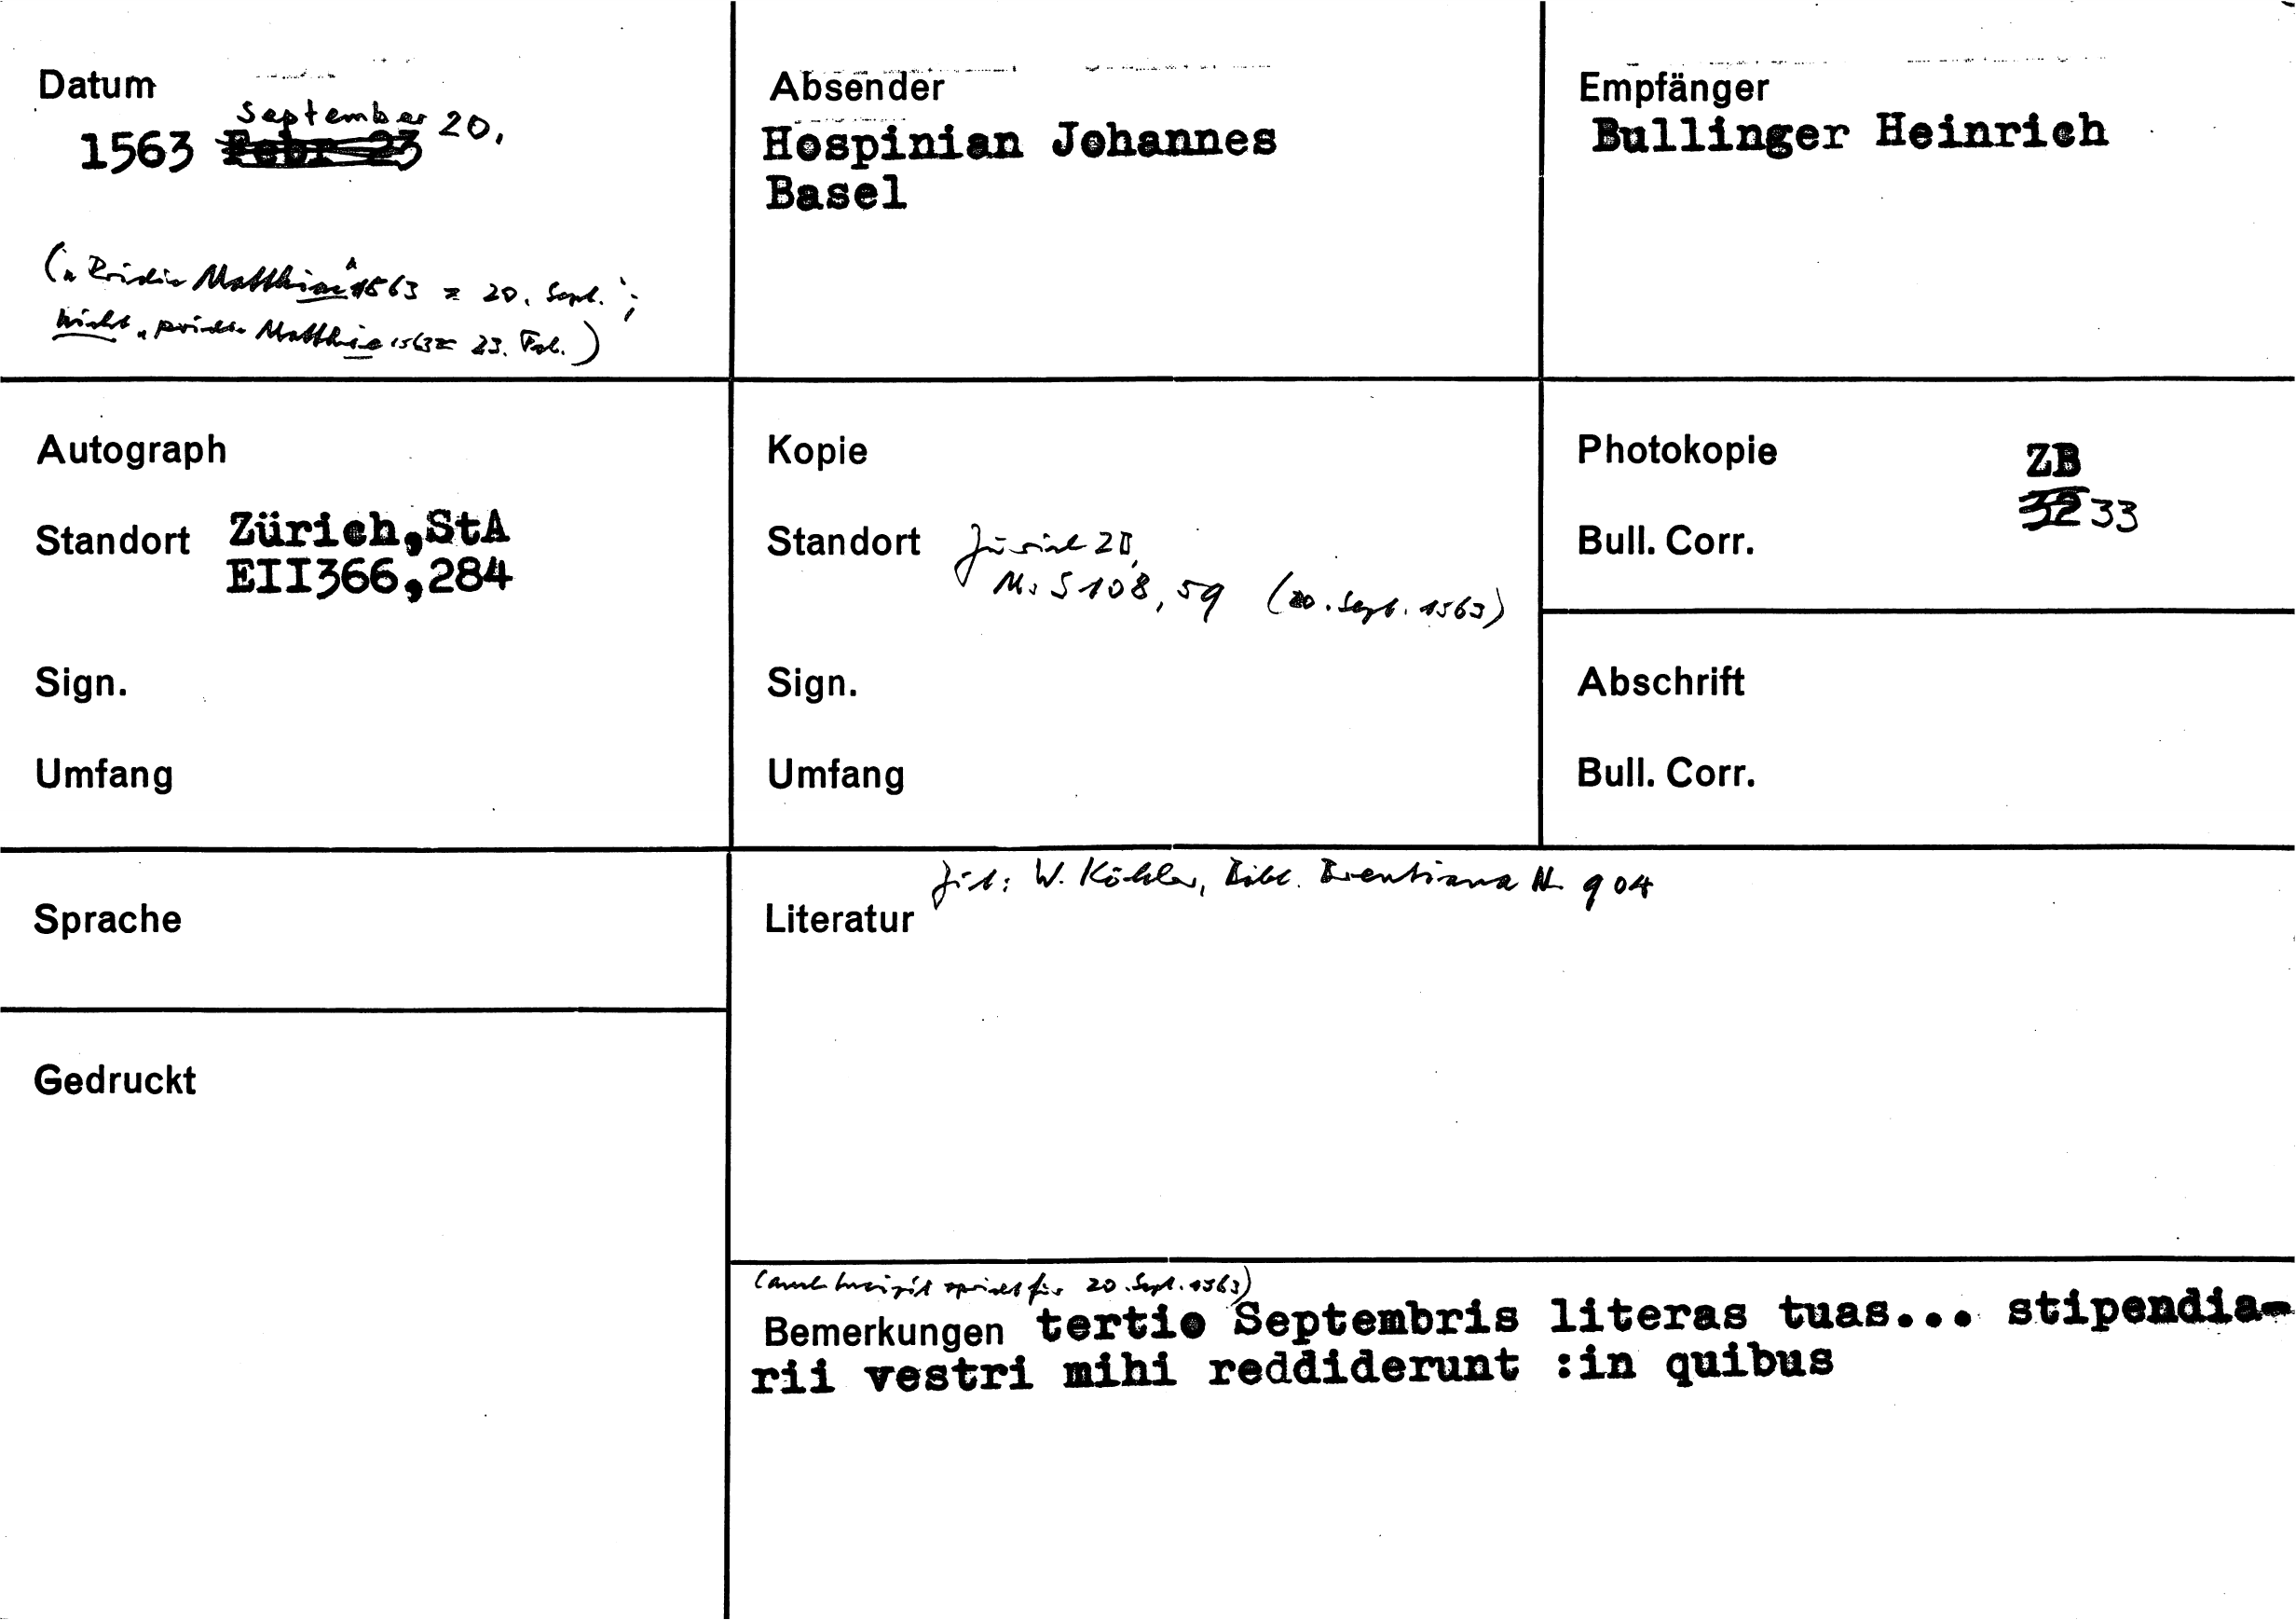 Datum
September 20.
1563 Febr 23
("Pridie Matthiae" 1563 = 20. Sept.;
nicht "pridie Matthie 1563 = 23. Feb.)
Absender
Hospinian Johannes
Basel
Empfänger
Bullinger Heinrich
Autograph
Standort Zürich,StA
EII366,284
Sign.
Umfang
Kopie
Standort Zürich ZB,
Ms S 108, 59 (20. Sept. 1563)
Sign.
Umfang
Photokopie ZB
Bull. Corr. 32 33
Abschrift
Bull. Corr.
Sprache
Zit: W. Köhler, Bibl. Brentiana Nr. 904
Literatur
Gedruckt
(auch Incipit spricht für 20. Sept. 1563)
Bemerkungen tertio Septembris literas tuas... stipendia-
rii vestri mihi reddiderunt :in quibus